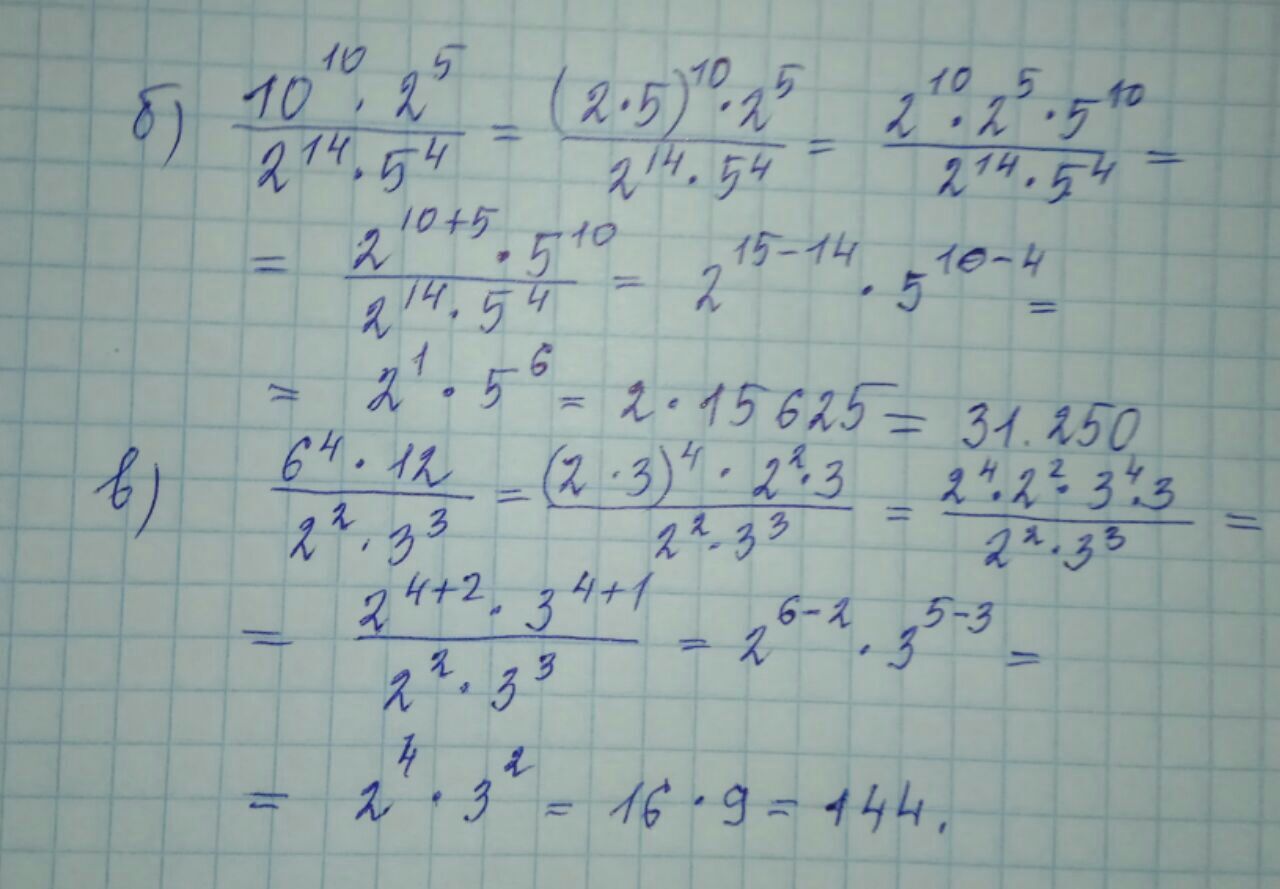 б) 10^10 · 2^5 / 2^14 · 5^4 = (2 · 5)^10 · 2^5 / 2^14 · 5^4 = 2^10 · 2^5 · 5^10 / 2^14 · 5^4 =
= 2^10+5 · 5^10 / 2^14 · 5^4 = 2^15-14 · 5^10-4 =
= 2^1 · 5^6 = 2 · 15625 = 31.250
в) 6^4 · 12 / 2^2 · 3^3 = (2 · 3)^4 · 2^2 · 3 / 2^2 · 3^3 = 2^4 · 2^2 · 3^4 · 3 / 2^2 · 3^3 =
= 2^4+2 · 3^4+1 / 2^2 · 3^3 = 2^6-2 · 3^5-3 =
= 2^4 · 3^2 = 16 · 9 = 144.